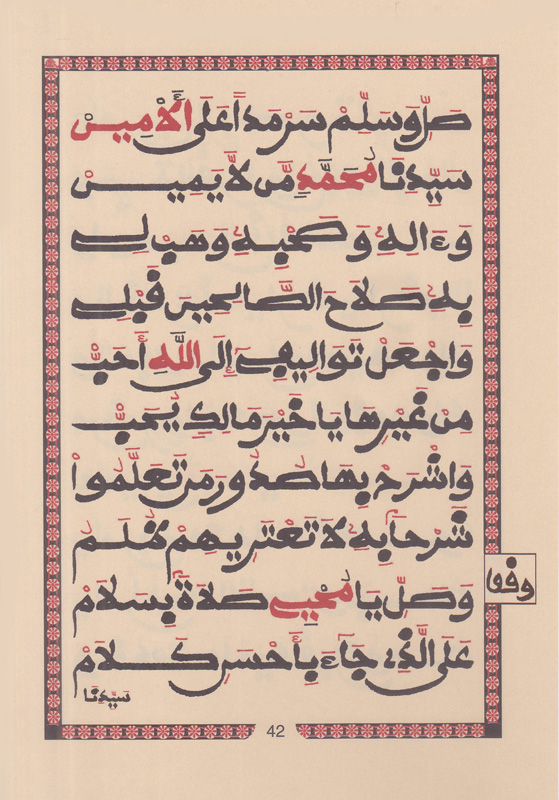 صَلِّ وَسَلِّمْ سَرْمَدًا عَلَى الْأَمِينْ
سَيِّدِنَا مُحَمَّدٍ مَّن لَّا يَمِينْ
وَءَالِهِ وَصَحْبِهِ وَهَبْ لِي
بِهِ صَلَاحَ الصَّالِحِينَ قَبْلِي
وَاجْعَلْ تَوَالِيفِي إِلَى اللَّهِ أَحَبّْ
مِنْ غَيْرِهَا يَا خَيْرَ مَالِكٍ يُحَبّْ
وَاشْرَحْ بِهَا صُدُورَ مَن تَعَلَّمُوا
شَرْحًا بِهِ لَا تَعْتَرِيهِمْ ظُلَمُ
وَصَلِّ يَا مُحْيِي صَلَاةً بِسَلَامْ
وفقا
عَلَى الَّذِي جَاءَ بِأَحْسَنِ كَلَامْ
سَيِّدِنَا
42